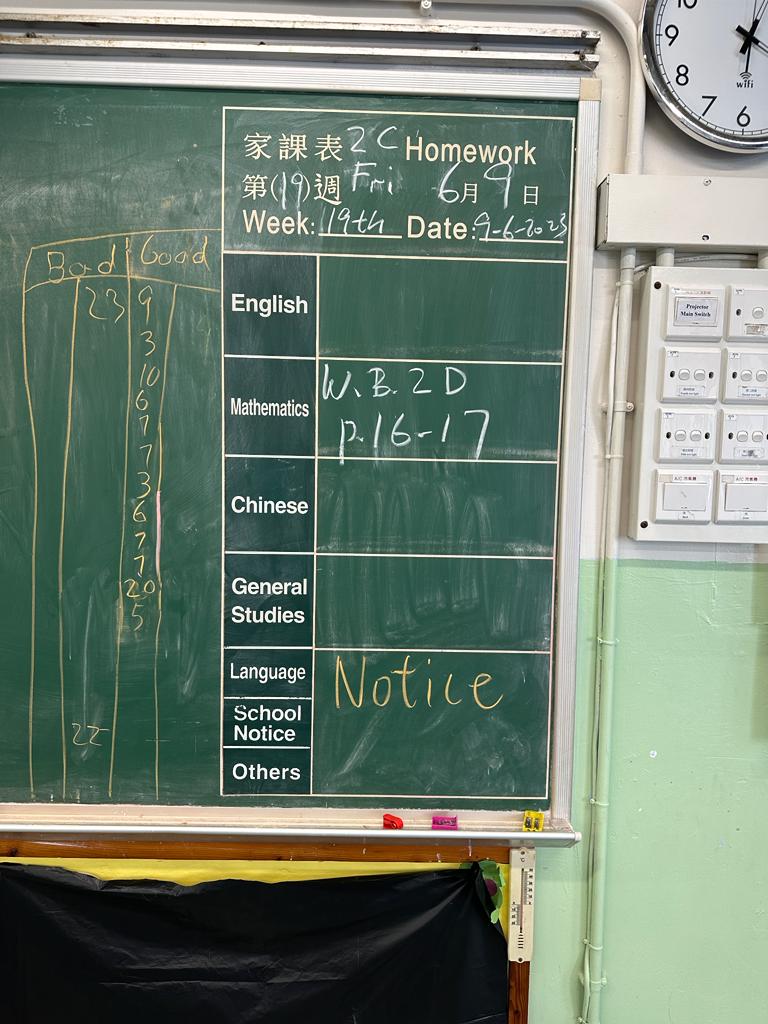 家課表 2C Homework
第(19)週 Fri 6月9日
Week: 19th Date: 9-6-2023
English
Mathematics
W.B. 2D
p.16-17
Chinese
General
Studies
Language
School
Notice
Others
Notice
Bad Good
23 9
3
10
6
7
7
3
6
7
7
20
5
22
10
9
8
7
6
wifi
Projector
Main Switch